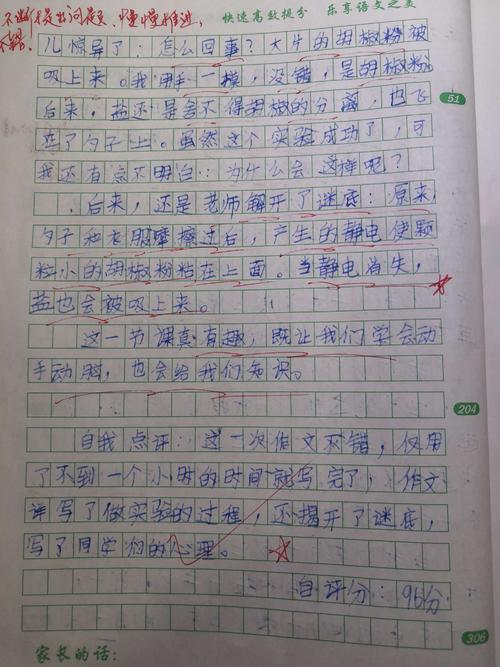 不断提出问题,慢慢推进,
快速高效提分 乐享语文之美
不错。
儿惊异了:怎么回事?大半的胡椒粉被
吸上来。我用手一摸,没错,是胡椒粉。
后来,盐还是舍不得胡椒的分离,也飞
51
到了勺子上。虽然这个实验成功了,可
我还有点不明白:为什么会这样呢?
后来,还是老师解开了谜底:原来,
勺子和衣服摩擦过后,产生的静电使颗
粒小的胡椒粉粘在上面。当静电消失,
盐也会被吸上来。
这一节课真有趣,既让我们学会动
手动脑,也会给我们知识。
204
自我点评:这一次作文不错,仅用
了不到一个小时的时间就写完了,作文
详写了做实验的过程,还揭开了谜底,
写了同学们的心理。
自评分:96分
306
家长的话: